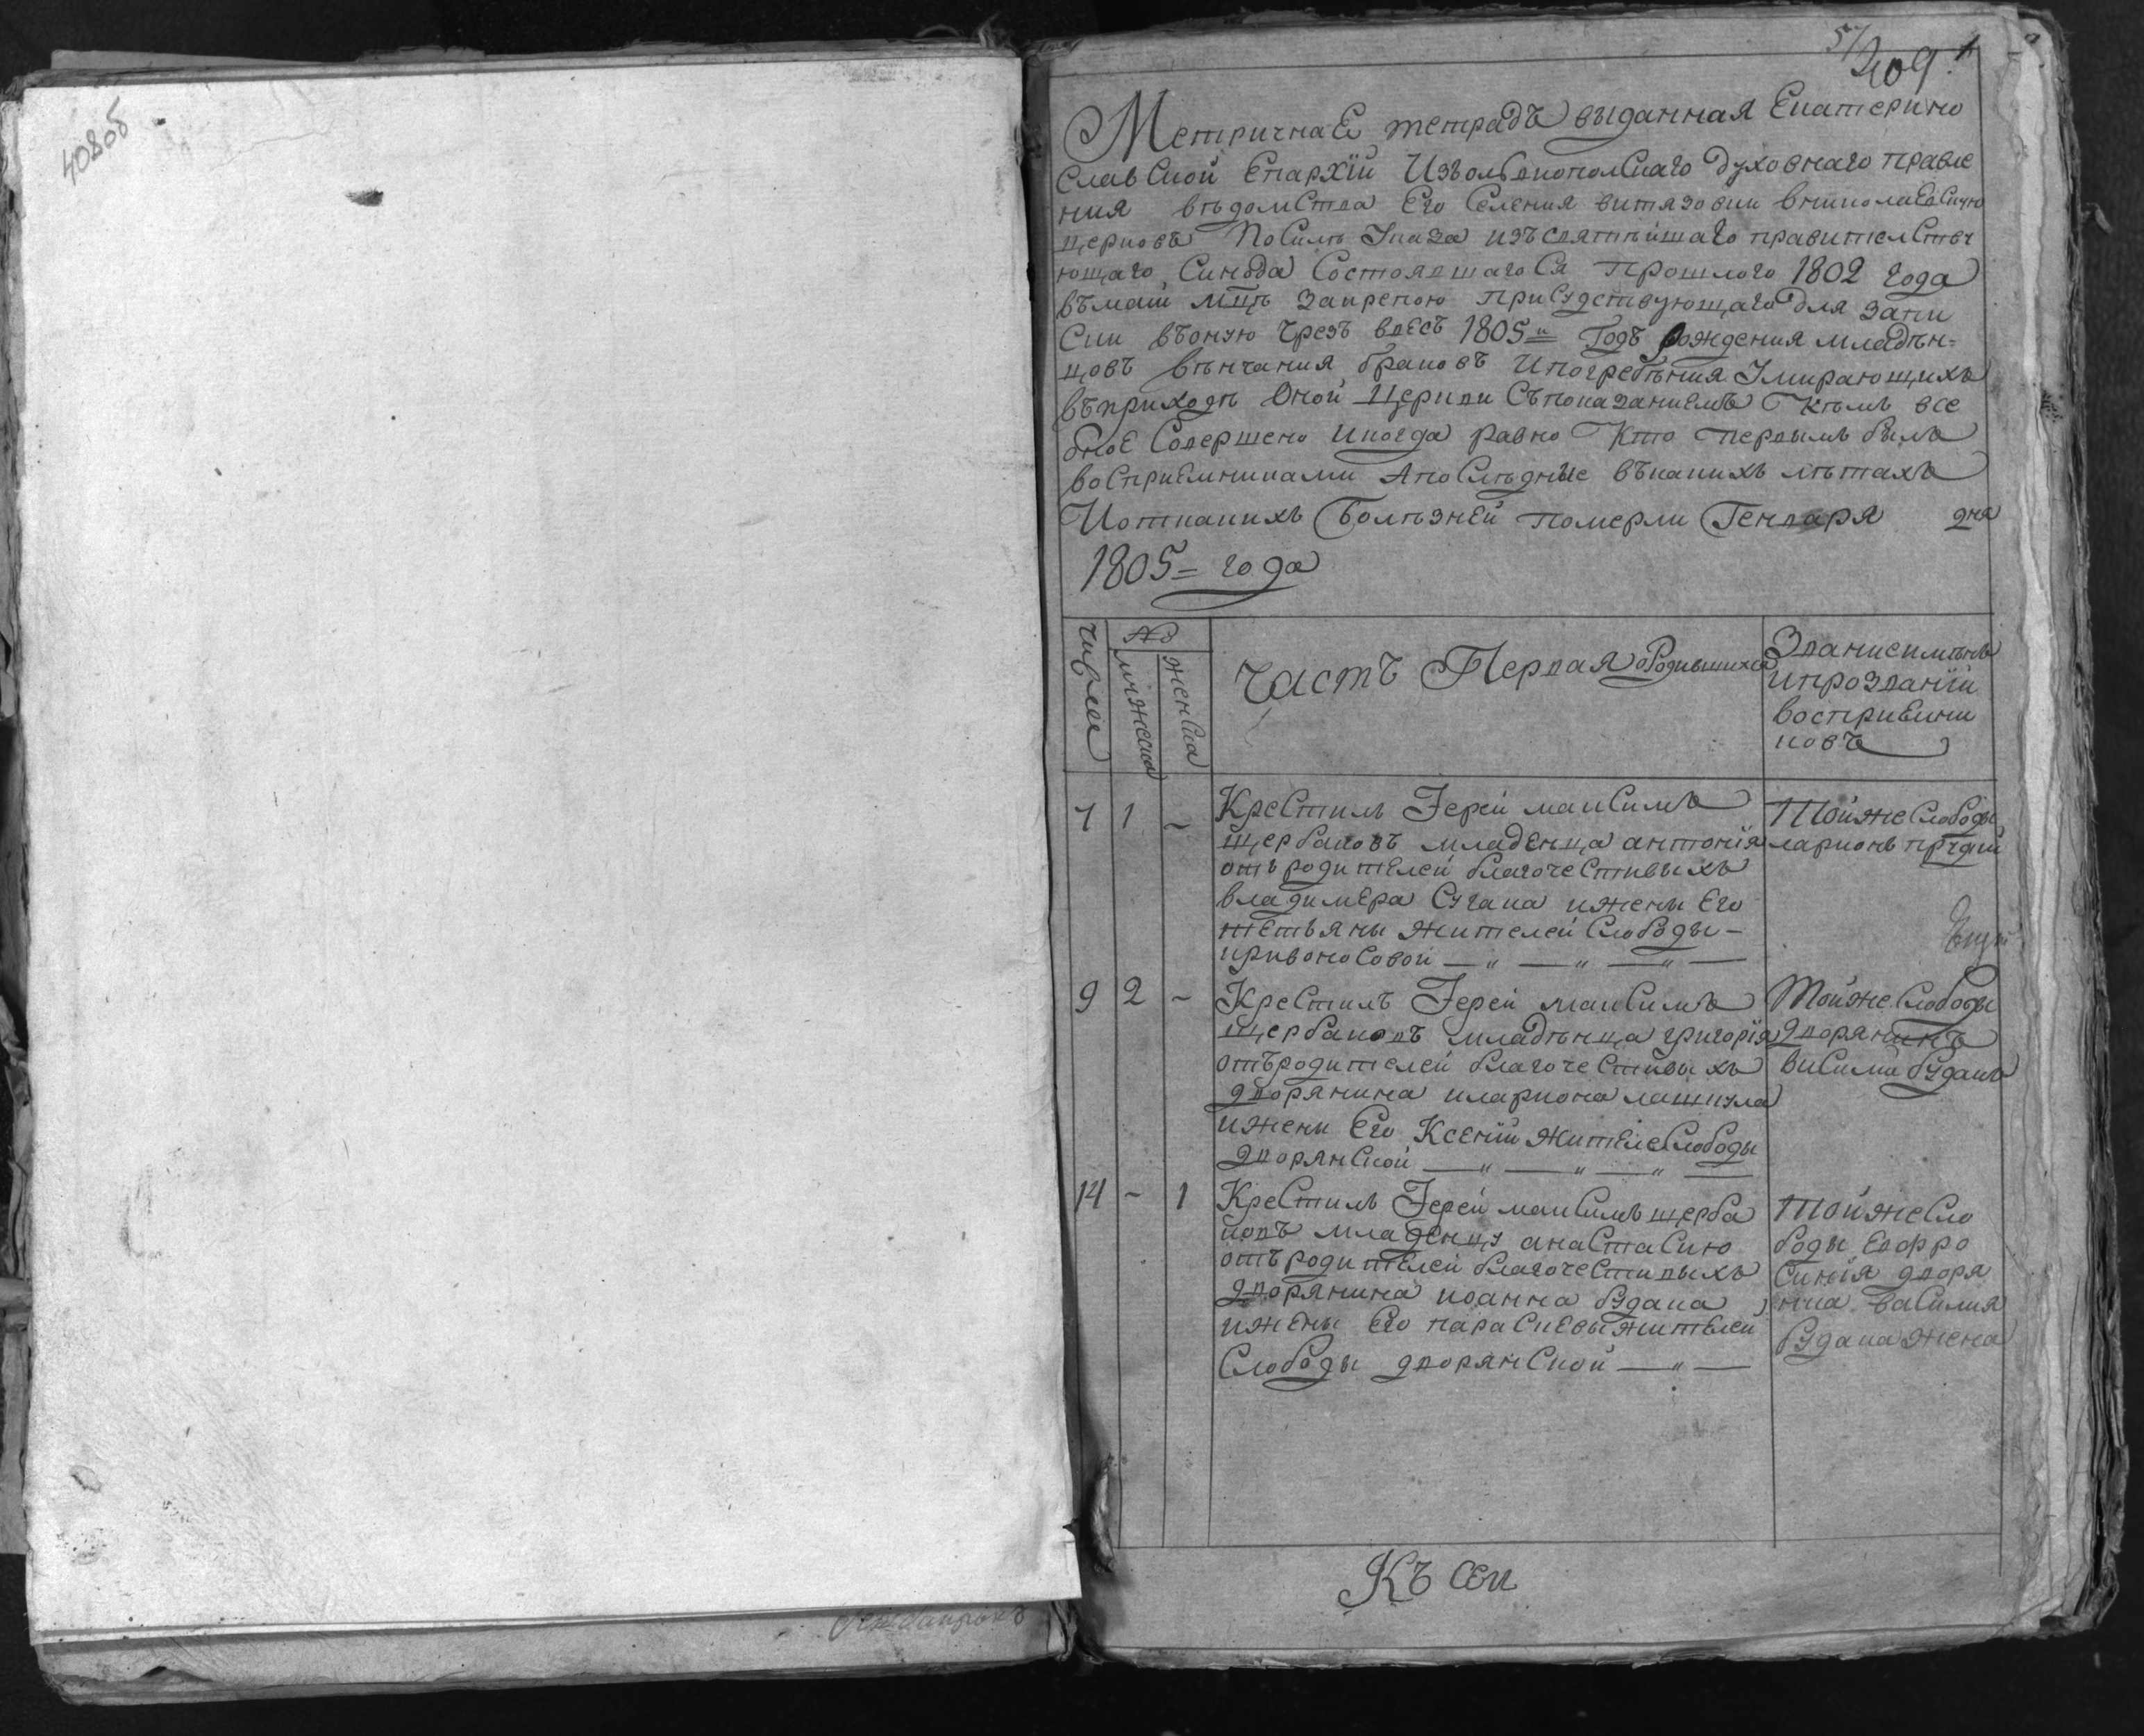 408об
57
409
МетричнаЕ тетрадъ выданная Екатерино
славской Епархіи Изъ олвиопольскаго духовнаго правле
ния вѣдомства Его Селения витязовки вниколаЕвскую
церковъ По Силѣ Указа изъ святѣйшаго правителству
ющаго Синода СостоявшагоСя прошлого 1802 года
въ маіи мцѣ закрепою присудствующаго для запи
Ски въоную чрезъ весъ 1805й годъ рождения младѣн=
цовъ вѣнчания браковъ Ипогребѣния Умирающихъ
въприходѣ Оной церкви Съпоказаниемъ Кѣмъ все
оноЕ Совершено Икогда равно Кто первымъ былъ
восприЕмниками АпоСлѣдные въкакихъ лѣтахъ
Иоткакихъ болѣзней померли Генваря дня
1805= года
число
№
мужеска
женСка
частъ Первая оРодившихся
Звание имѣнъ
ипрозваніи
восприЕмни
ковъ
7 1 ~
КреСтилъ Іерей макСимъ
щербаковъ младЕнца антонія
отъ родителей благочеСтивыхъ
владимЕра Сугака ижены Его
тЕтьяны жителей Слободы –
кривоноСовой — „ — „ — „ —
Тойже Слободы
ларионъ прудкій
9 2 ~
КреСтилъ Іерей макСимъ
щербаковъ младѣнца григорія
отъродителей благочеСтивыхъ
дворянина илариона лашкула
ижены Его Ксеніи ЖитЕле Слободы
дворянСкой — „ — „ — „ —
Тойже Слободы
дворянинъ
ваСилий будакъ
14 ~ 1
КреСтилъ Іерей макСимъ щерба
ковъ младЕнцу анаСтаСию
отъ родитЕлей благочеСтивыхъ
дворянина иоанна будака
ижЕны Его параСкЕвы жителей
Слободы дворянСкой — „ —
Тойже Сло
боды Евфро
Синія дворя
нина ваСилия
будака жена
Къ Сей